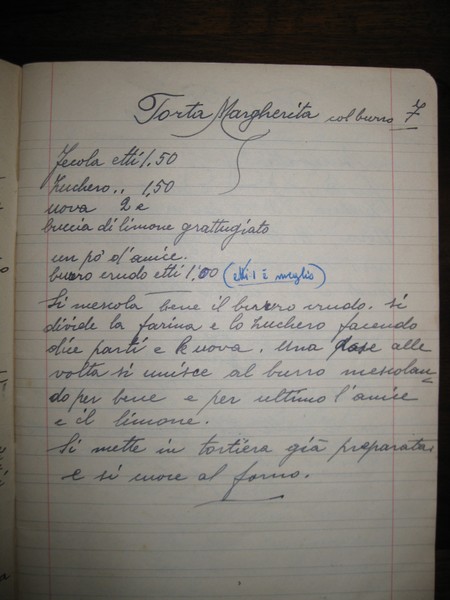 Torta Margherita col burro 7
Fecola etti 1,50
Zucchero ,, 1,50
uova 2 e
buccia di limone grattugiato
un pò d'amice.
burro crudo etti 1,00 (etti 1 è meglio)
Si mescola bene il burro crudo. si
divide la farina e lo zucchero facendo
due parti e le uova. Una dose alle
volta si unisce al burro mescolan=
do per bene e per ultimo l'amice
e il limone.
Si mette in tortiera già preparata
e si cuoce al forno.